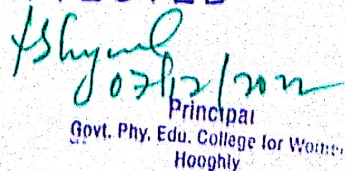 07/12/2022
Principal
Govt. Phy. Edu. College for Women
Hooghly